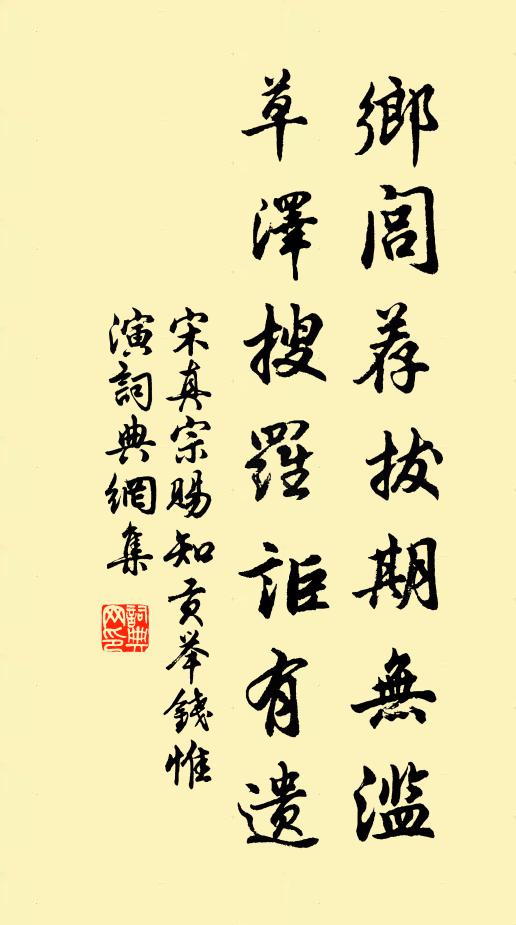 鄉閭荐拔期無滥
草澤搜羅詎有遺
宋真宗賜知贡举錢惟
演詞典網集
詞典
网印